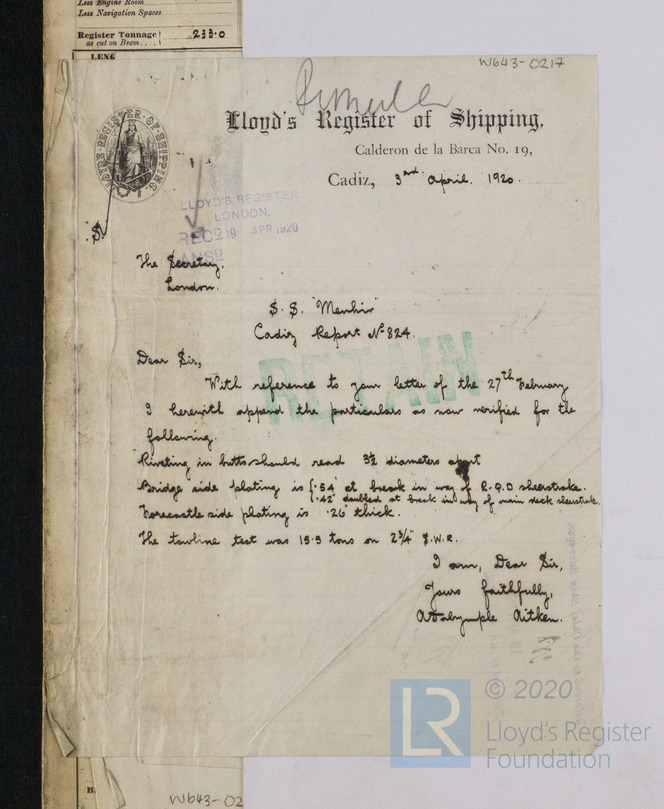 Less Engine Room
Less Navigation Spaces
Register Tonnage
as cut on Beam....
233.0
W643-0217
Lloyd's Register of Shipping,
Calderon de la Barca No. 19,
Cadiz, 3rd April. 1920.
LLOYD'S REGISTER OF SHIPPING
LLOYD'S REGISTER
LONDON.
RECD 19 APR 1920
ANSD
The Secretary,
London.
S.S. "Menhir"
Cadiz Report No 824.
Dear Sir,
RETAIN
With reference to your letter of the 27th February
I herewith append the particulars as now verified for the
following.
Riveting in butts should read 3½ diameters apart
Bridge side plating is {.54" at break in way of R.Q.D sheerstrake.
{.42" doubled at break in way of main deck sheerstrake.
Forecastle side plating is .26" thick.
The towline test was 15.5 tons on 2¾" S.W.R.
I am, Dear Sir,
Yours faithfully,
A Dalrymple Aitken.
LR
© 2020
Lloyd's Register
Foundation
W643-02